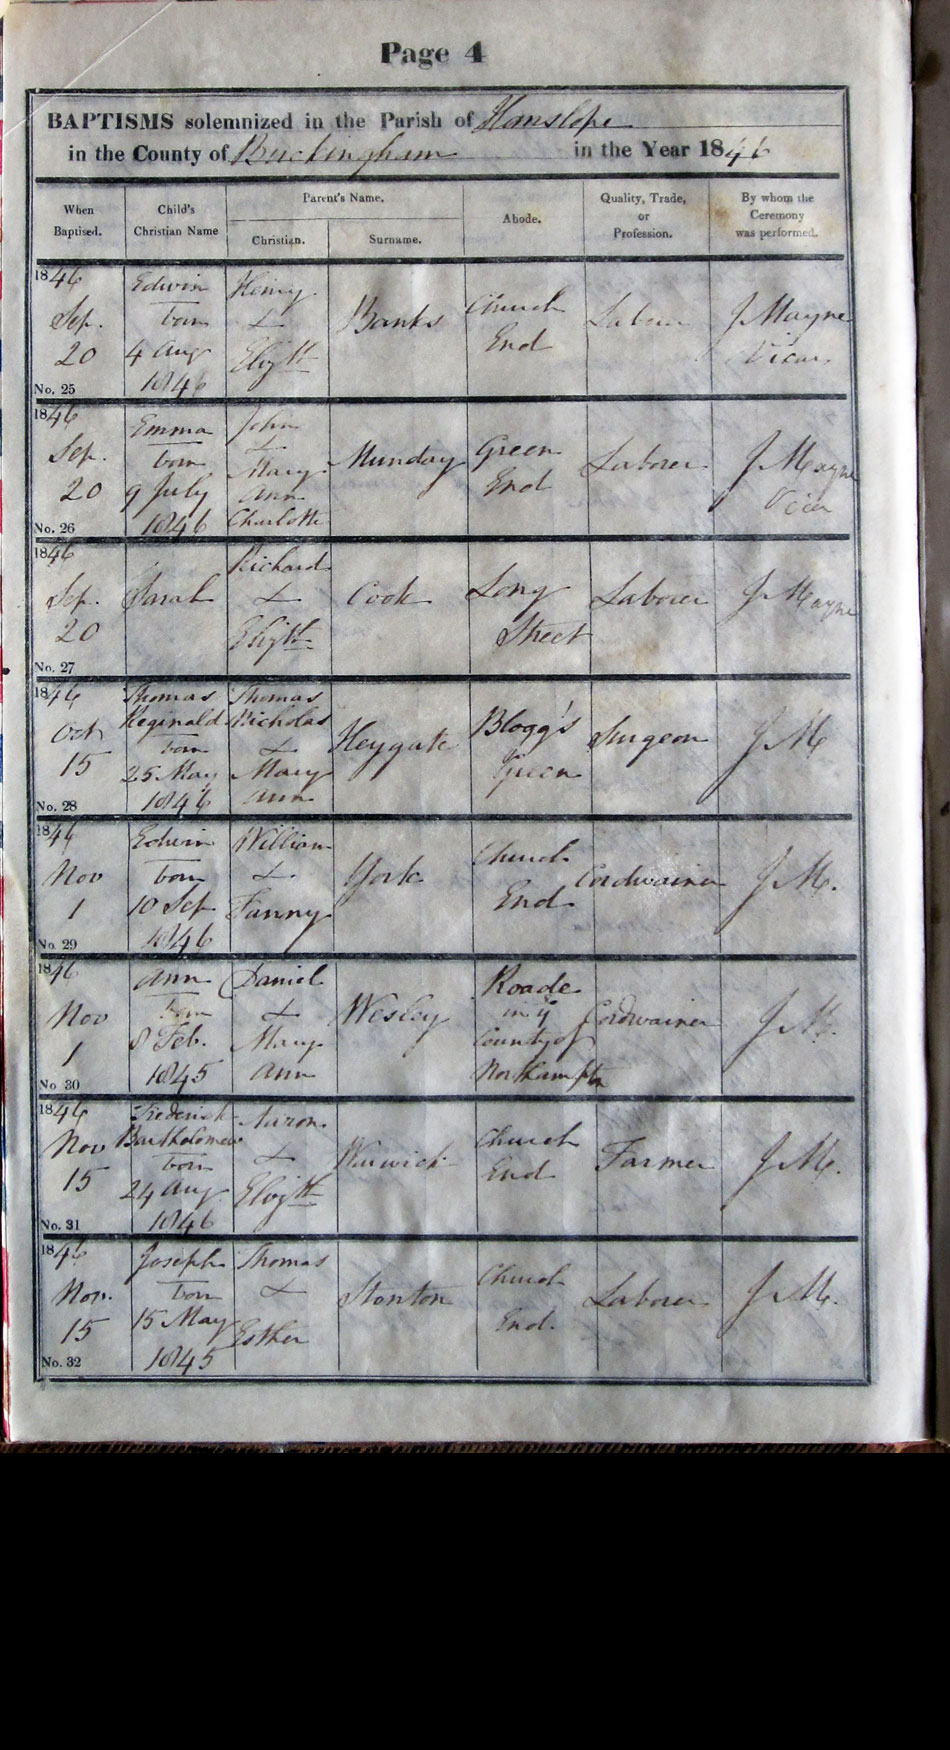 Page 4
BAPTISMS solemnized in the Parish of Hanslope
in the County of Buckingham in the Year 1846
When Baptised.
Child's Christian Name
Parent's Name.
Christian.
Surname.
Abode.
Quality, Trade, or Profession.
By whom the Ceremony was performed.
1846
Sep.
20
No. 25
Edwin
born
4 Aug
1846
Henry
&
Elizth
Banks
Church
End
Labour
J Mayne
Vicar
1846
Sep.
20
No. 26
Emma
born
9 July
1846
John
&
Mary
Ann
Charlotte
Munday
Green
End
Laborer
J Mayne
Vicar
1846
Sep.
20
No. 27
Sarah
Richard
&
Elizth
Cook
Long
Street
Laborer
J Mayne
1846
Oct
15
No. 28
Thomas
Reginald
born
25 May
1846
Thomas
Nicholas
&
Mary
Ann
Heygate
Blogg's
Green
Surgeon
J M
1846
Nov
1
No. 29
Edwin
born
10 Sep
1846
William
&
Fanny
York
Church
End
Cordwainer
J M.
1846
Nov
1
No 30
Ann
born
8 Feb.
1845
Daniel
&
Mary
Ann
Wesley
Roade
in ye
County of
Northampton
Cordwainer
J M.
1846
Nov
15
No. 31
Frederick
Bartholomew
born
24 Aug.
1846
Aaron
&
Elizth
Warwick
Church
End
Farmer
J M.
1846
Nov.
15
No. 32
Joseph
born
15 May
1845
Thomas
&
Esther
Stanton
Church
End.
Laborer
J M.